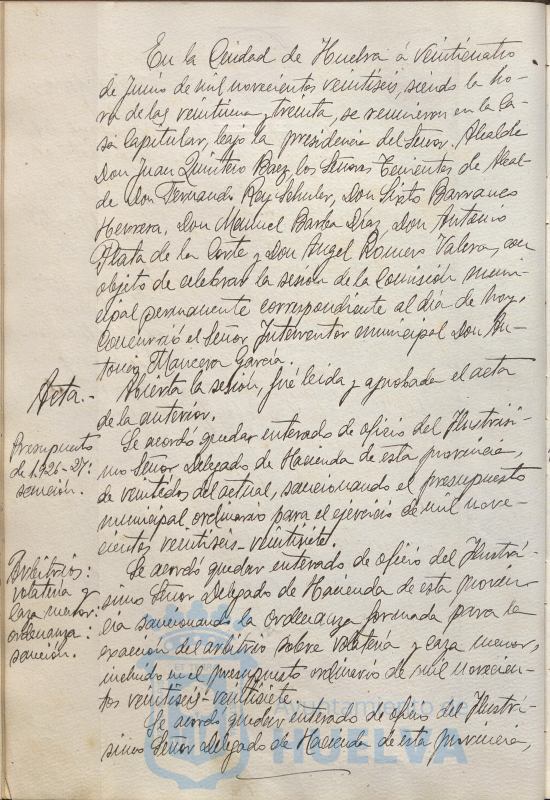 En la Ciudad de Huelva á veinticuatro
de Junio de mil novecientos veintiseis, siendo la ho-
ra de las veintiuna y treinta, se reunieron en la Ca-
sa Capitular, bajo la presidencia del Señor Alcalde
Don Juan Quintero Baez, los Señores Tenientes de Alcal-
de Don Fernando Rey Schuler, Don Sixto Barranco
Herrera, Don Manuel Barba Diaz, Don Antonio
Plata de la Corte y Don Angel Romero Valera, con
objeto de celebrar la sesión de la Comisión muni-
cipal permanente correspondiente al día de hoy.
Concurrió el Señor Interventor municipal Don An-
tonio Mancera García.
Acta.-
Abierta la sesión, fué leida y aprobada el acta
de la anterior.
Presupuesto
de 1.926-27:
sanción.
Se acordó quedar enterado de oficio del Ilustrísi-
mo Señor Delegado de Hacienda de esta provincia,
de veintidos del actual, sancionando el presupuesto
municipal ordinario para el ejercicio de mil nove-
cientos veintiseis-veintisiete.
Arbitrios:
volatería y
caza menor:
ordenanza:
sanción.
Se acordó quedar enterado de oficio del Ilustrí-
simo Señor Delegado de Hacienda de esta provin-
cia sancionando la ordenanza formada para la
exacción del arbitrio sobre volatería y caza menor,
incluido en el presupuesto ordinario de mil novecien-
tos veintiseis-veintisiete.
Se acordó quedar enterado de oficio del Ilustrí-
simo Señor Delegado de Hacienda de esta provincia,
Ayuntamiento de
HUELVA